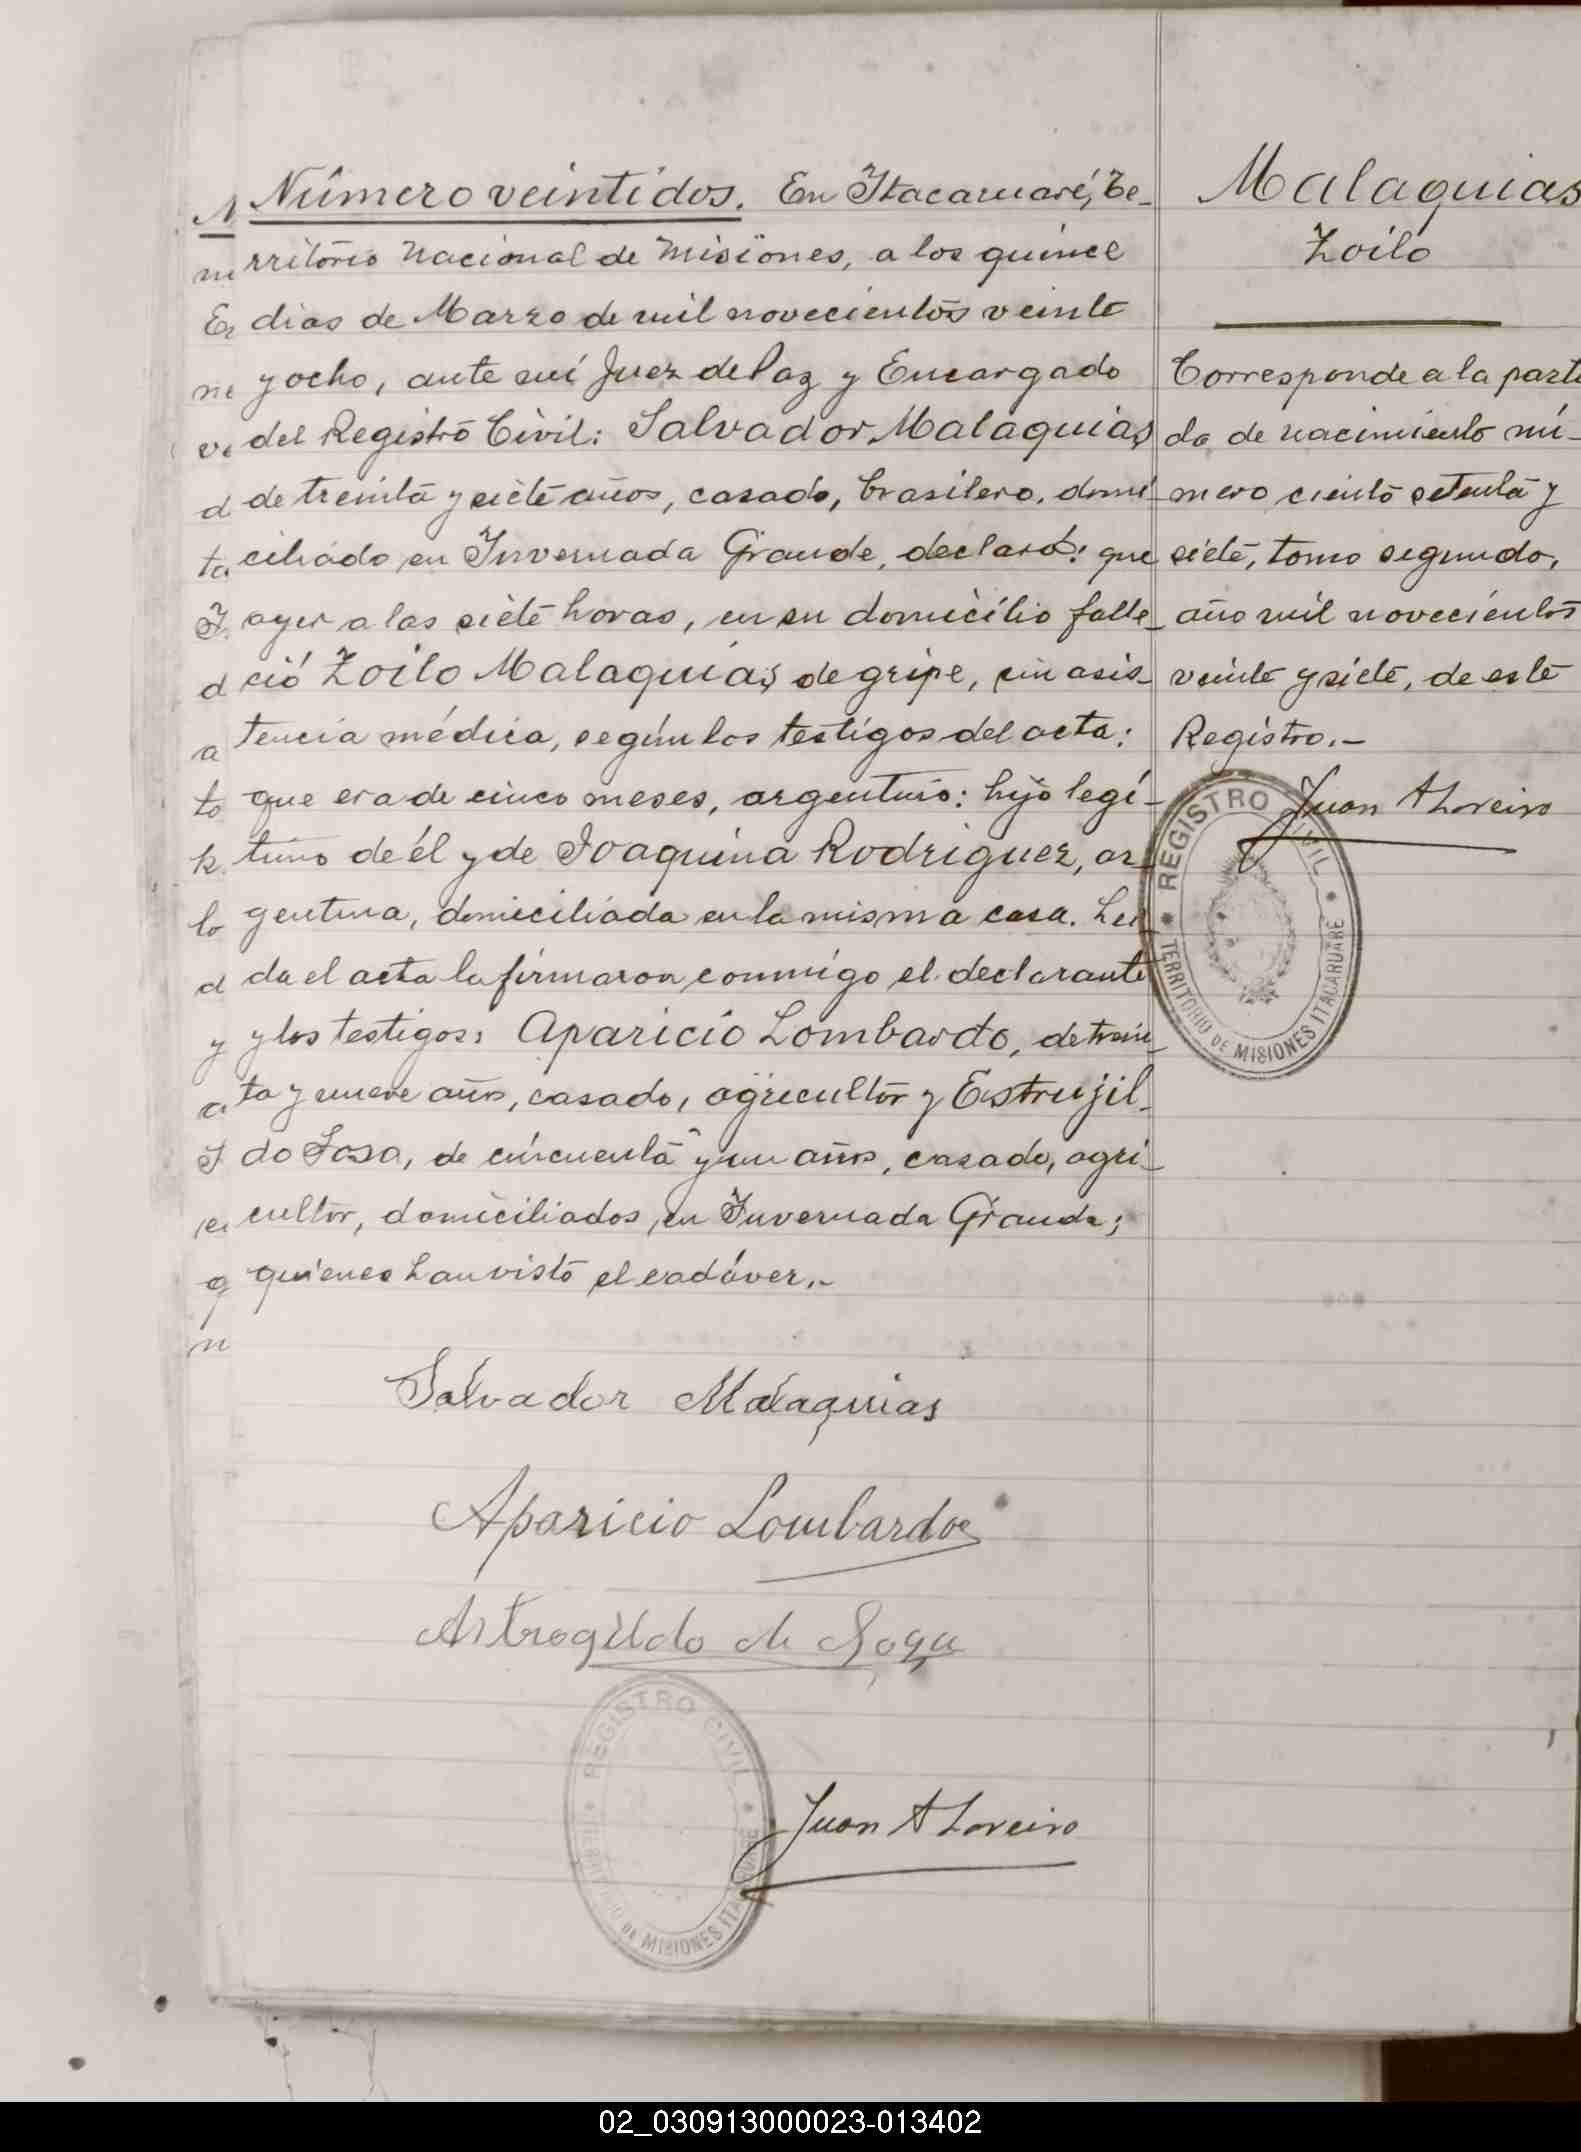 Número veintidos. En Itacaruaré, Te-
rritorio Nacional de Misiones, a los quince
dias de Marzo de mil novecientos veinte
y ocho, ante mí Juez de Paz y Encargado
del Registro Civil: Salvador Malaquias
de treinta y siete años, casado, brasilero, domi-
ciliado en Invernada Grande, declaró: que
ayer a las siete horas, en su domicilio falle-
ció Zoilo Malaquias, de gripe, sin asis-
tencia médica, según los testigos del acta:
que era de cinco meses, argentino: hijo legí-
timo de él y de Joaquina Rodriguez, ar-
gentina, domiciliada en la misma casa. Leí-
da el acta la firmaron conmigo el declarante
y los testigos: Aparicio Lombardo, de trein-
ta y nueve años, casado, agricultor y Estrujil-
do Sosa, de cincuenta y un años, casado, agri-
cultor, domiciliados en Invernada Grande;
quienes han visto el cadáver.-
Salvador Malaquias
Aparicio Lombardo
Astrogildo de Soza
REGISTRO CIVIL
TERRITORIO DE MISIONES ITACARUARE
Juan A Loreiro
Malaquias
Zoilo
Corresponde a la parti
da de nacimiento nú-
mero ciento setenta y
siete, tomo segundo,
año mil novecientos
veinte y siete, de este
Registro.-
Juan A Loreiro
REGISTRO CIVIL
TERRITORIO DE MISIONES ITACARUARE
02_030913000023-013402